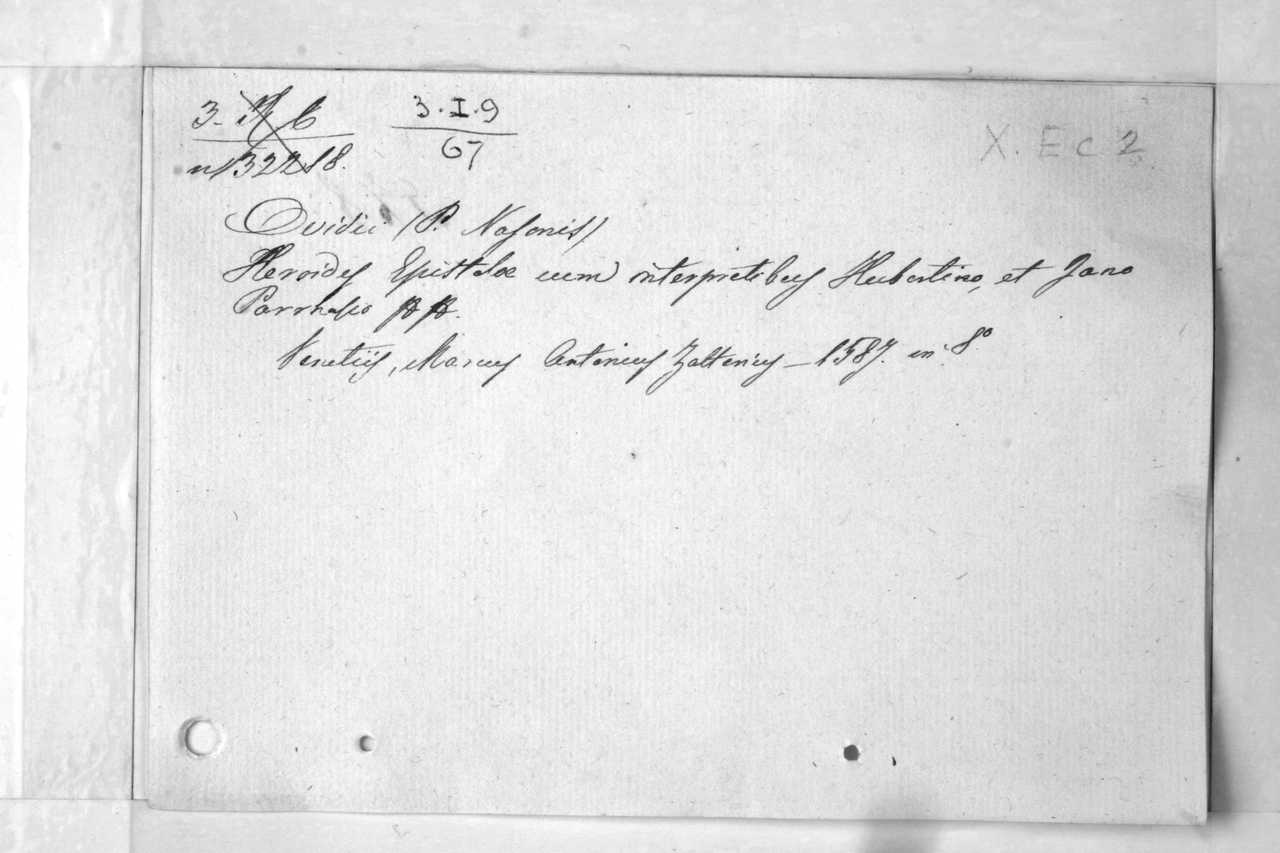 3. I. 9
67
X. E C 2
Ovidii (P. Nasonis)
Heroides Epistolae cum interpretibus Hubertino, et Jano
Parrhasio
Venetiis, Marcus Antonius Zalterius – 1587. in 8º